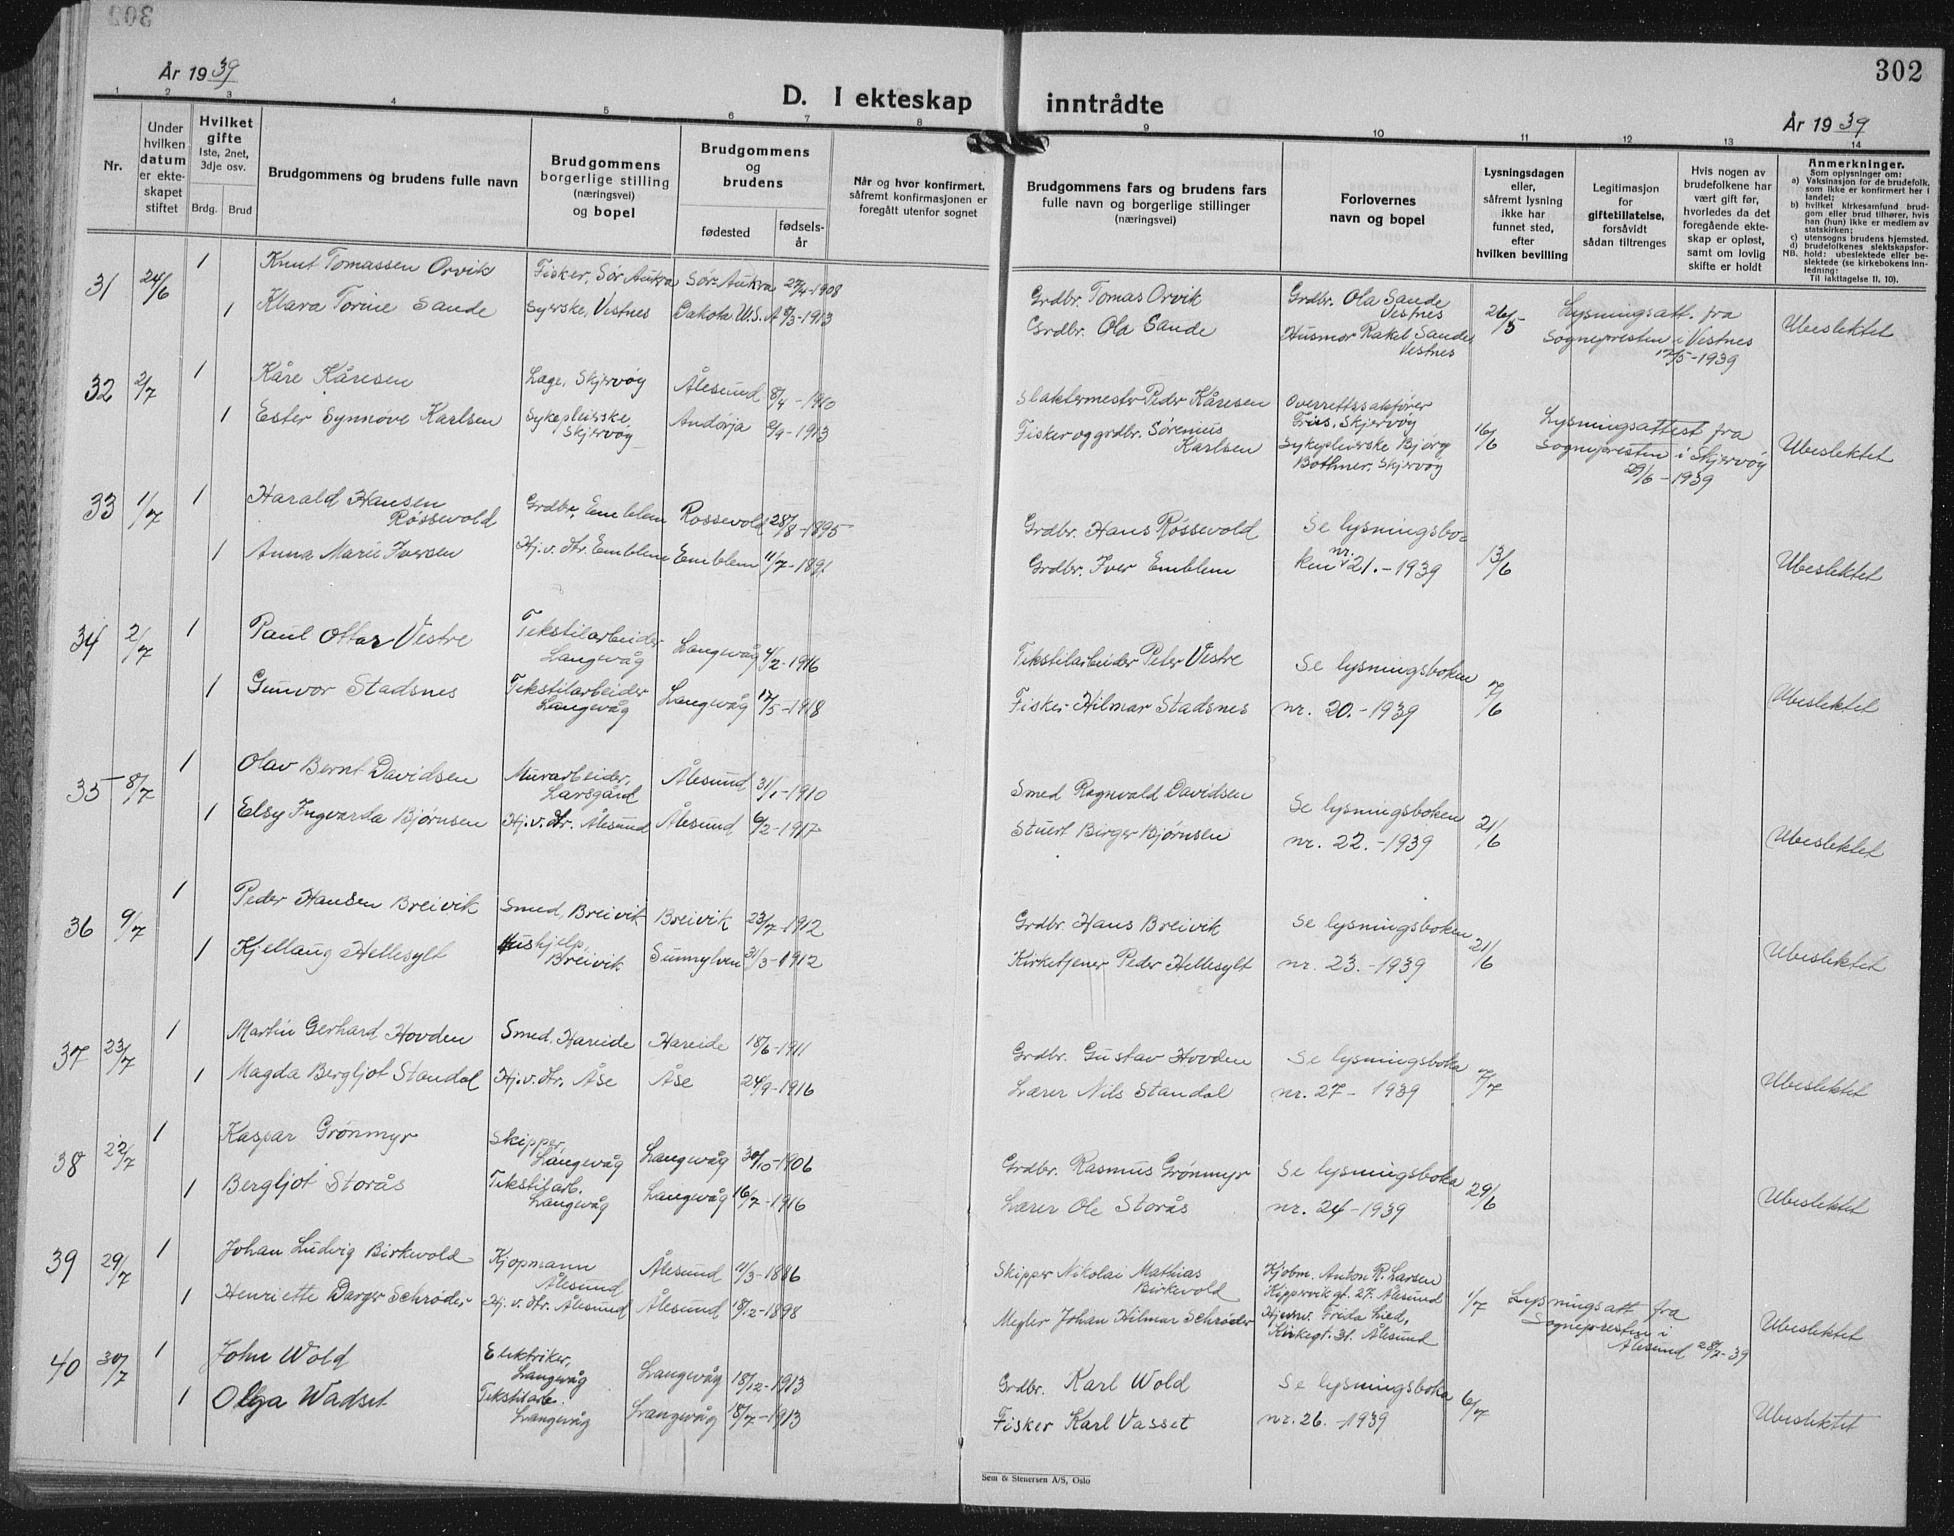 302
År 1939
D. I ekteskap inntrådte
År 1939
1 2 3 4 5 6 7 8 9 10 11 12 13 14
Nr.
Under hvilken datum er ekteskapet stiftet
Hvilket gifte 1ste, 2net, 3dje osv.
Brdg. Brud
Brudgommens og brudens fulle navn
Brudgommens borgerlige stilling (næringsvei) og bopel
Brudgommens og brudens
fødested
fødselsår
Når og hvor konfirmert, såfremt konfirmasjonen er foregått utenfor sognet
Brudgommens fars og brudens fars fulle navn og borgerlige stillinger (næringsvei)
Forlovernes navn og bopel
Lysningsdagen eller, såfremt lysning ikke har funnet sted, efter hvilken bevilling
Legitimasjon for giftetillatelse, forsåvidt sådan tiltrenges
Hvis nogen av brudefolkene har vært gift før, hvorledes da det foregående ekteskap er opløst, samt om lovlig skifte er holdt
Anmerkninger.
Som oplysninger om:
a) Vaksinasjon for de brudefolk, som ikke er konfirmert her i landet;
b) hvilket kirkesamfund brudgom eller brud tilhører, hvis han (hun) ikke er medlem av statskirken;
c) utensogns brudens hjemsted.
d) brudefolkenes slektskapsforhold: ubeslektede eller beslektede (se kirkebokens innledning:
NB.
Til iakttagelse II, 10).
31 24/6 1 Knut Tomassen Orvik Fisker, Sør Aukra Sør Aukra 27/4-1908 Grdbr. Tomas Orvik Grdbr. Ola Sande Vestnes 26/5 Lysningsatt. fra Sognepresten i Vestnes 12/5-1939 Ubeslektet
1 Klara Torine Sande Syerske, Vestnes Dakota U.S.A 8/3-1913 Grdbr. Ola Sande Husmor Rakel Sande Vestnes
32 2/7 1 Kåre Kåresen Læge, Skjervøy Ålesund 8/4-1910 Slaktermester Peder Kåresen Overrettssakfører Friis, Skjervøy 16/6 Lysningsattest fra Sognepresten i Skjervøy 29/6-1939 Ubeslektet
1 Ester Synnöve Karlsen Sykepleierske Skjervøy Andörja 6/9-1913 Fisker og grdbr. Sörenius Karlsen Sykepleierske Bjorg Bothner, Skjervøy
33 1/7 1 Harald Hansen Røssevold Grdbr, Emblem Rossevold 28/8-1895 Grdbr. Hans Røssevold Se lysningsbo- 13/6 Ubeslektet
1 Anna Marie Iversen Hj.v. dtr. Emblem Emblem 11/7-1891 Grdbr. Iver Emblem ken nr. 21.-1939
34 2/7 1 Paul Ottar Vestre Tekstilarbeider Langevåg Langevåg 4/2-1916 Tekstilarbeider Peter Vestre Se lysningsboken 7/6 Ubeslektet
1 Gunvor Stadsnes Tekstilarbeider Langevåg Langevåg 17/5-1918 Fisker Hilmar Stadsnes nr. 20.-1939
35 8/7 1 Olav Bernt Davidsen Murarbeider, Larsgård Ålesund 31/1-1910 Smed Ragnvald Davidsen Se lysningsboken 21/6 Ubeslektet
1 Elsy Ingvarda Bjørnsen Hj.v. dtr. Ålesund Ålesund 6/2-1917 Stuert Birger Bjørnsen nr. 22.-1939
36 9/7 1 Peder Hansen Breivik Smed, Breivik Breivik 23/7-1912 Grdbr. Hans Breivik Se lysningsboken 21/6 Ubeslektet
1 Kjellaug Hellesylt Hushjelp, Breivik Sunnylven 31/3-1912 Kirketjener Peder Hellesylt nr. 23.-1939
37 23/7 1 Martin Gerhard Hovden Smed, Hareide Hareide 18/6-1911 Grdbr. Gustav Hovden Se lysningsboka 7/7 Ubeslektet
1 Magda Bergljot Standal Hj.v. dtr, Åse Åse 24/9-1916 Lærer Nils Standal nr. 27-1939
38 22/7 1 Kaspar Grönmyr Skipper, Langevåg Langevåg 30/10-1906 Grdbr. Rasmus Grønmyr Se lysningsboka 29/6 Ubeslektet
1 Bergljot Storås Tekstilarb. Langevåg Langevåg 16/7-1916 Lærer Ole Storås nr. 24-1939
39 29/7 1 Johan Ludvig Birkevold Kjøpmann Ålesund Ålesund 11/3-1886 Skipper Nikolai Mathias Birkevold Kjøbm. Anton R. Larsen Kippervikgt. 27. Ålesund 1/7 Lysningsatt fra Sognepresten i Ålesund 28/7-39 Ubeslektet
1 Henriette Darger Schrøder Hj. v. dtr. Ålesund Ålesund 18/12-1898 Megler Johan Hilmar Schrøder Frida Lied, Kirkegt. 31. Ålesund
40 30/7 1 John Wold Elektriker, Langevåg Langevåg 18/12-1913 Grdbr. Karl Wold Se lysningsboka 6/7 Ubeslektet
1 Olga Wadset Tekstilarb. Langevåg Langevåg 18/7-1913 Fisker Karl Vasset nr. 26.-1939
Sem & Stenersen A/S, Oslo